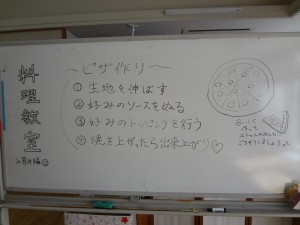 料理教室
～ピザ作り～
① 生地を伸ばす
② 好みのソースをぬる
③ 好みのトッピングを行う
④ 焼き上がったら出来上がり♡